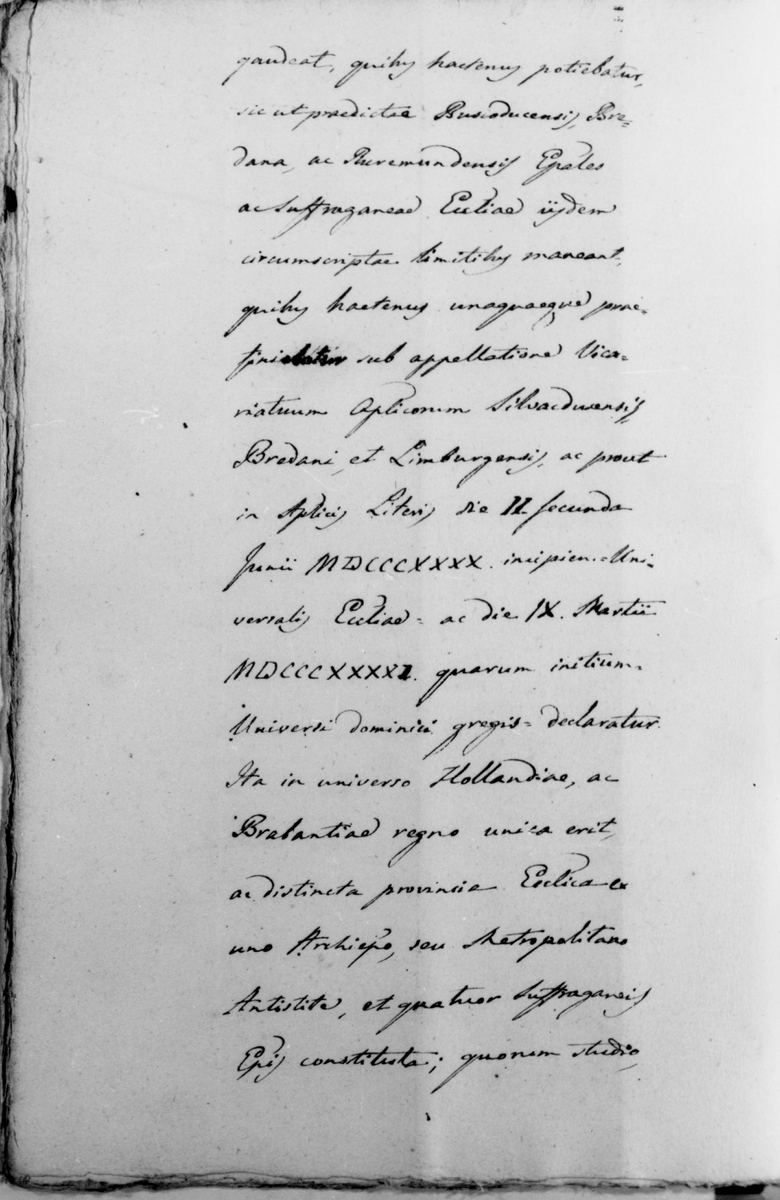 gaudeat, quibus hactenus potiebatur,
sic ut praedictae Buscoducensis, Bre=
dana, ac Ruremundensis Epales
ac Suffraganeae Ecctiae iisdem
circumscriptae limitibus maneant,
quibus hactenus unaquaeque prae=
finiebatur sub appellatione Vica=
riatuum Aplicorum Silvaeducensis,
Bredani, et Limburgensis, ac prout
in Aplicis Literis die II secunda
Junii MDCCCXXXX. incipien.=Uni=
versalis Eccliae= ac die IX. Martii
MDCCCXXXXI. quarum initium=
Universi dominici gregis= declaratur.
Ita in universo Hollandiae, ac
Brabantiae regno unica erit,
ac distincta provincia Ecclica ex
uno Archiepo, seu Metropolitano
Antistite, et quatuor Suffraganeis
Epis constituta; quorum studio,